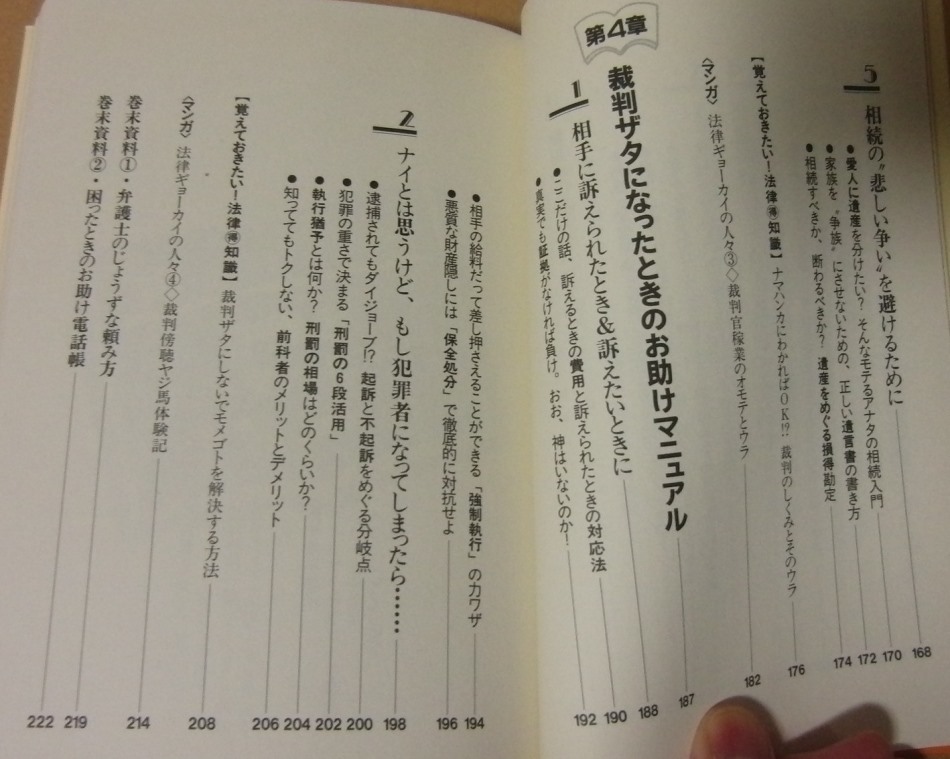 5 相続の〝悲しい争い〟を避けるために 168
●愛人に遺産を分けたい? そんなモテるアナタの相続入門 170
●家族を〝争族〟にさせないための、正しい遺言書の書き方 172
●相続すべきか、断わるべきか? 遺産をめぐる損得勘定 174
【覚えておきたい!法律㊕知識】ナマハンカにわかればOK!? 裁判のしくみとそのウラ 176
〈マンガ〉法律ギョーカイの人々③◇裁判官稼業のオモテとウラ 182
第4章
裁判ザタになったときのお助けマニュアル 187
1 相手に訴えられたとき&訴えたいときに 188
●ここだけの話、訴えるときの費用と訴えられたときの対応法 190
●真実でも証拠がなければ負け。おお、神はいないのか! 192
●相手の給料だって差し押さえることができる「強制執行」の力ワザ 194
●悪質な財産隠しには「保全処分」で徹底的に対抗せよ 196
2 ナイとは思うけど、もし犯罪者になってしまったら…… 198
●逮捕されてもダイジョーブ!? 起訴と不起訴をめぐる分岐点 200
●犯罪の重さで決まる「刑罰の6段活用」 202
●執行猶予とは何か? 刑罰の相場はどのくらいか? 204
●知っててもトクしない、前科者のメリットとデメリット 206
【覚えておきたい!法律㊕知識】裁判ザタにしないでモメゴトを解決する方法 208
〈マンガ〉法律ギョーカイの人々④◇裁判傍聴ヤジ馬体験記 214
巻末資料①・弁護士のじょうずな頼み方 219
巻末資料②・困ったときのお助け電話帳 222